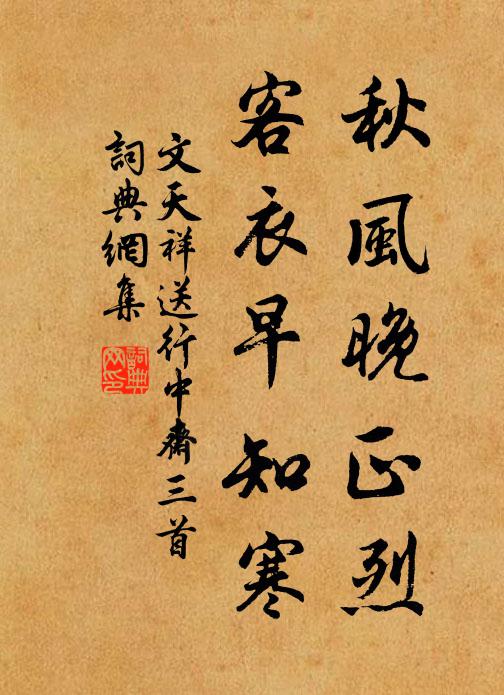 秋風晚正烈
客衣早知寒
文天祥送行中齋三首
詞典網集
詞典網印